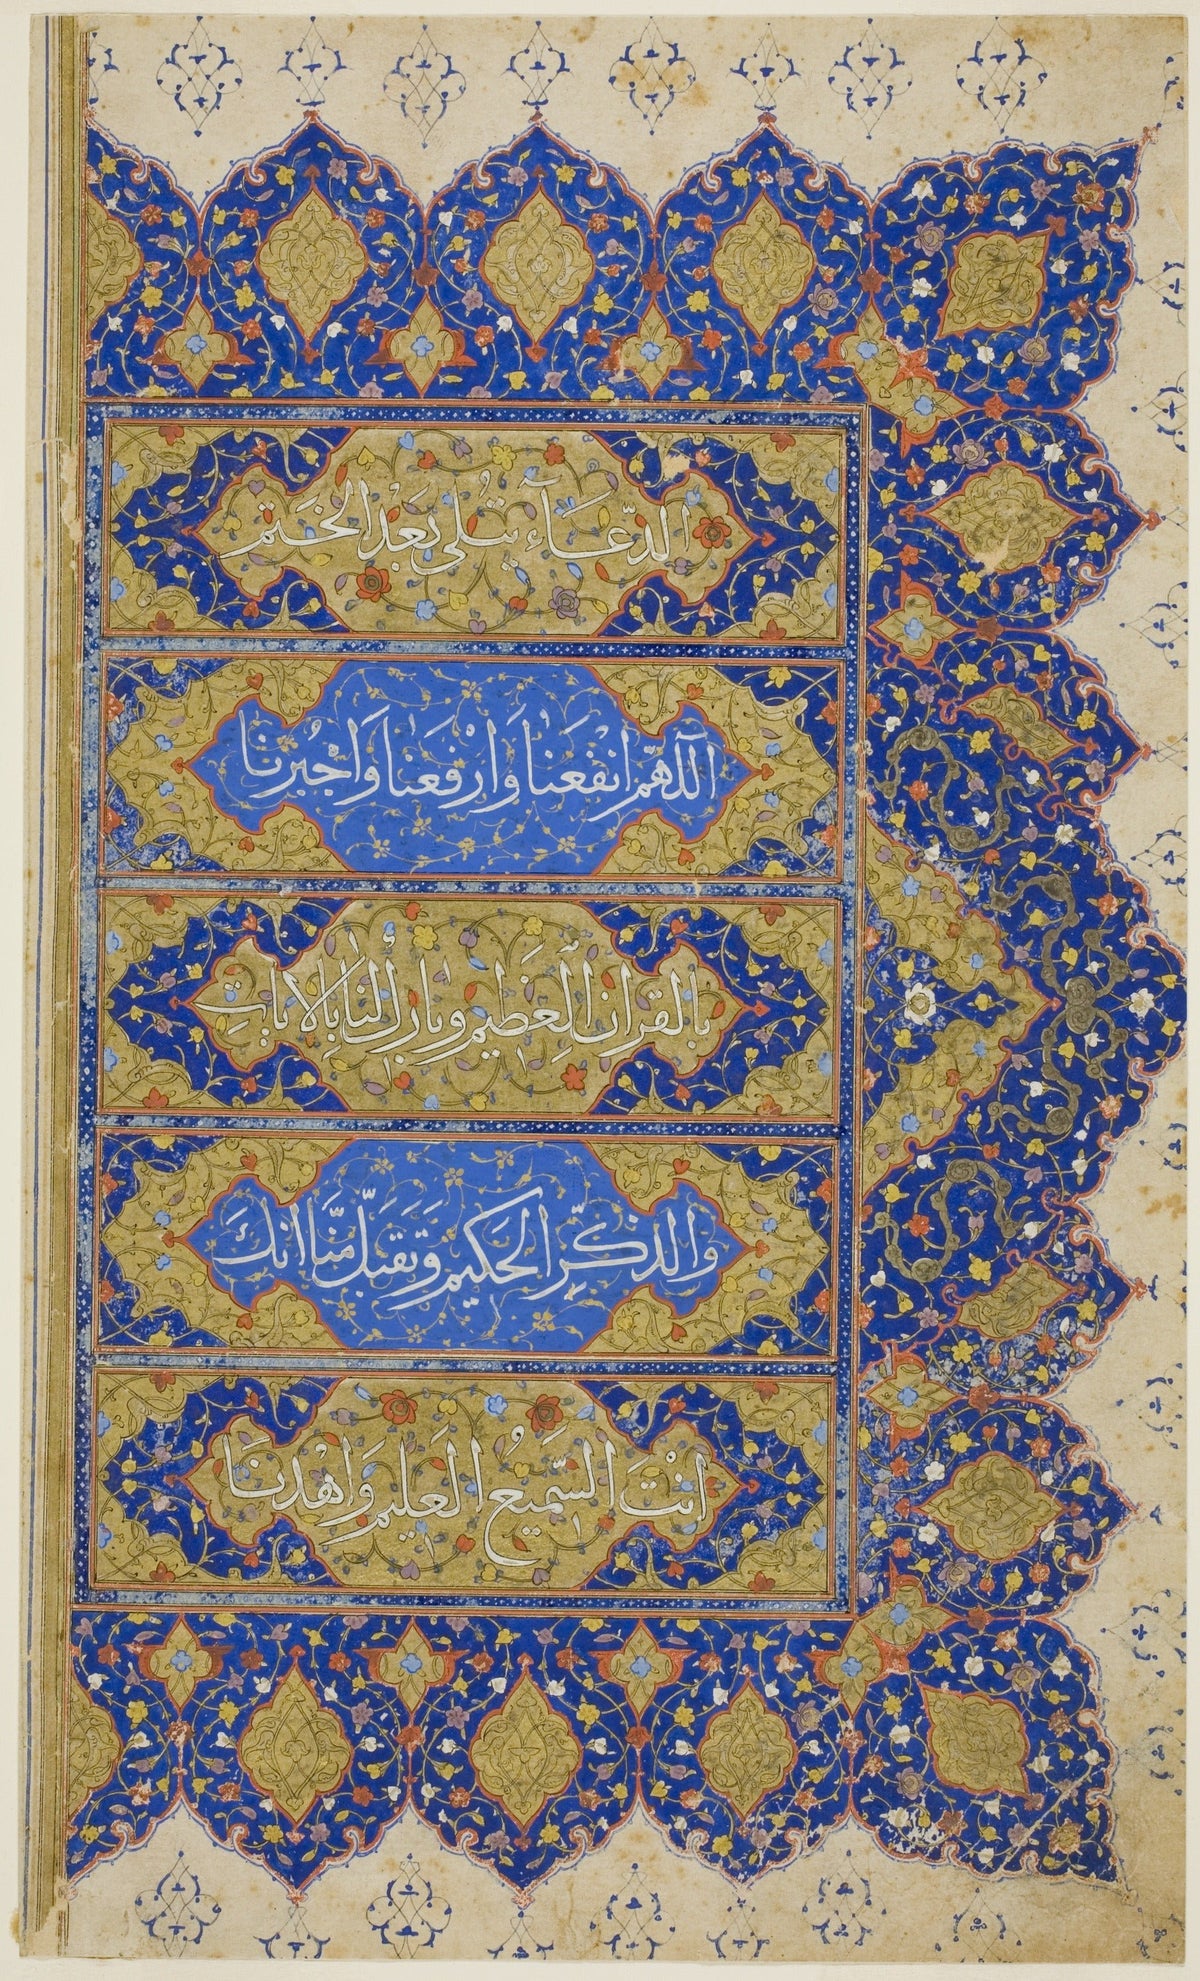 الدّعَآء يُتلى بَعْدَ الخَتم
اللّٰهمّ انْفعَنَا وَارْفعَنا وَاجْبُرنَا
بالقران العَظيم وبارك لنا بالايات
والذكّرِ الحَكيم وَتقبَّل منَّا انكَ
انْتَ السّمَيعُ العَليم وَاهْدنَا